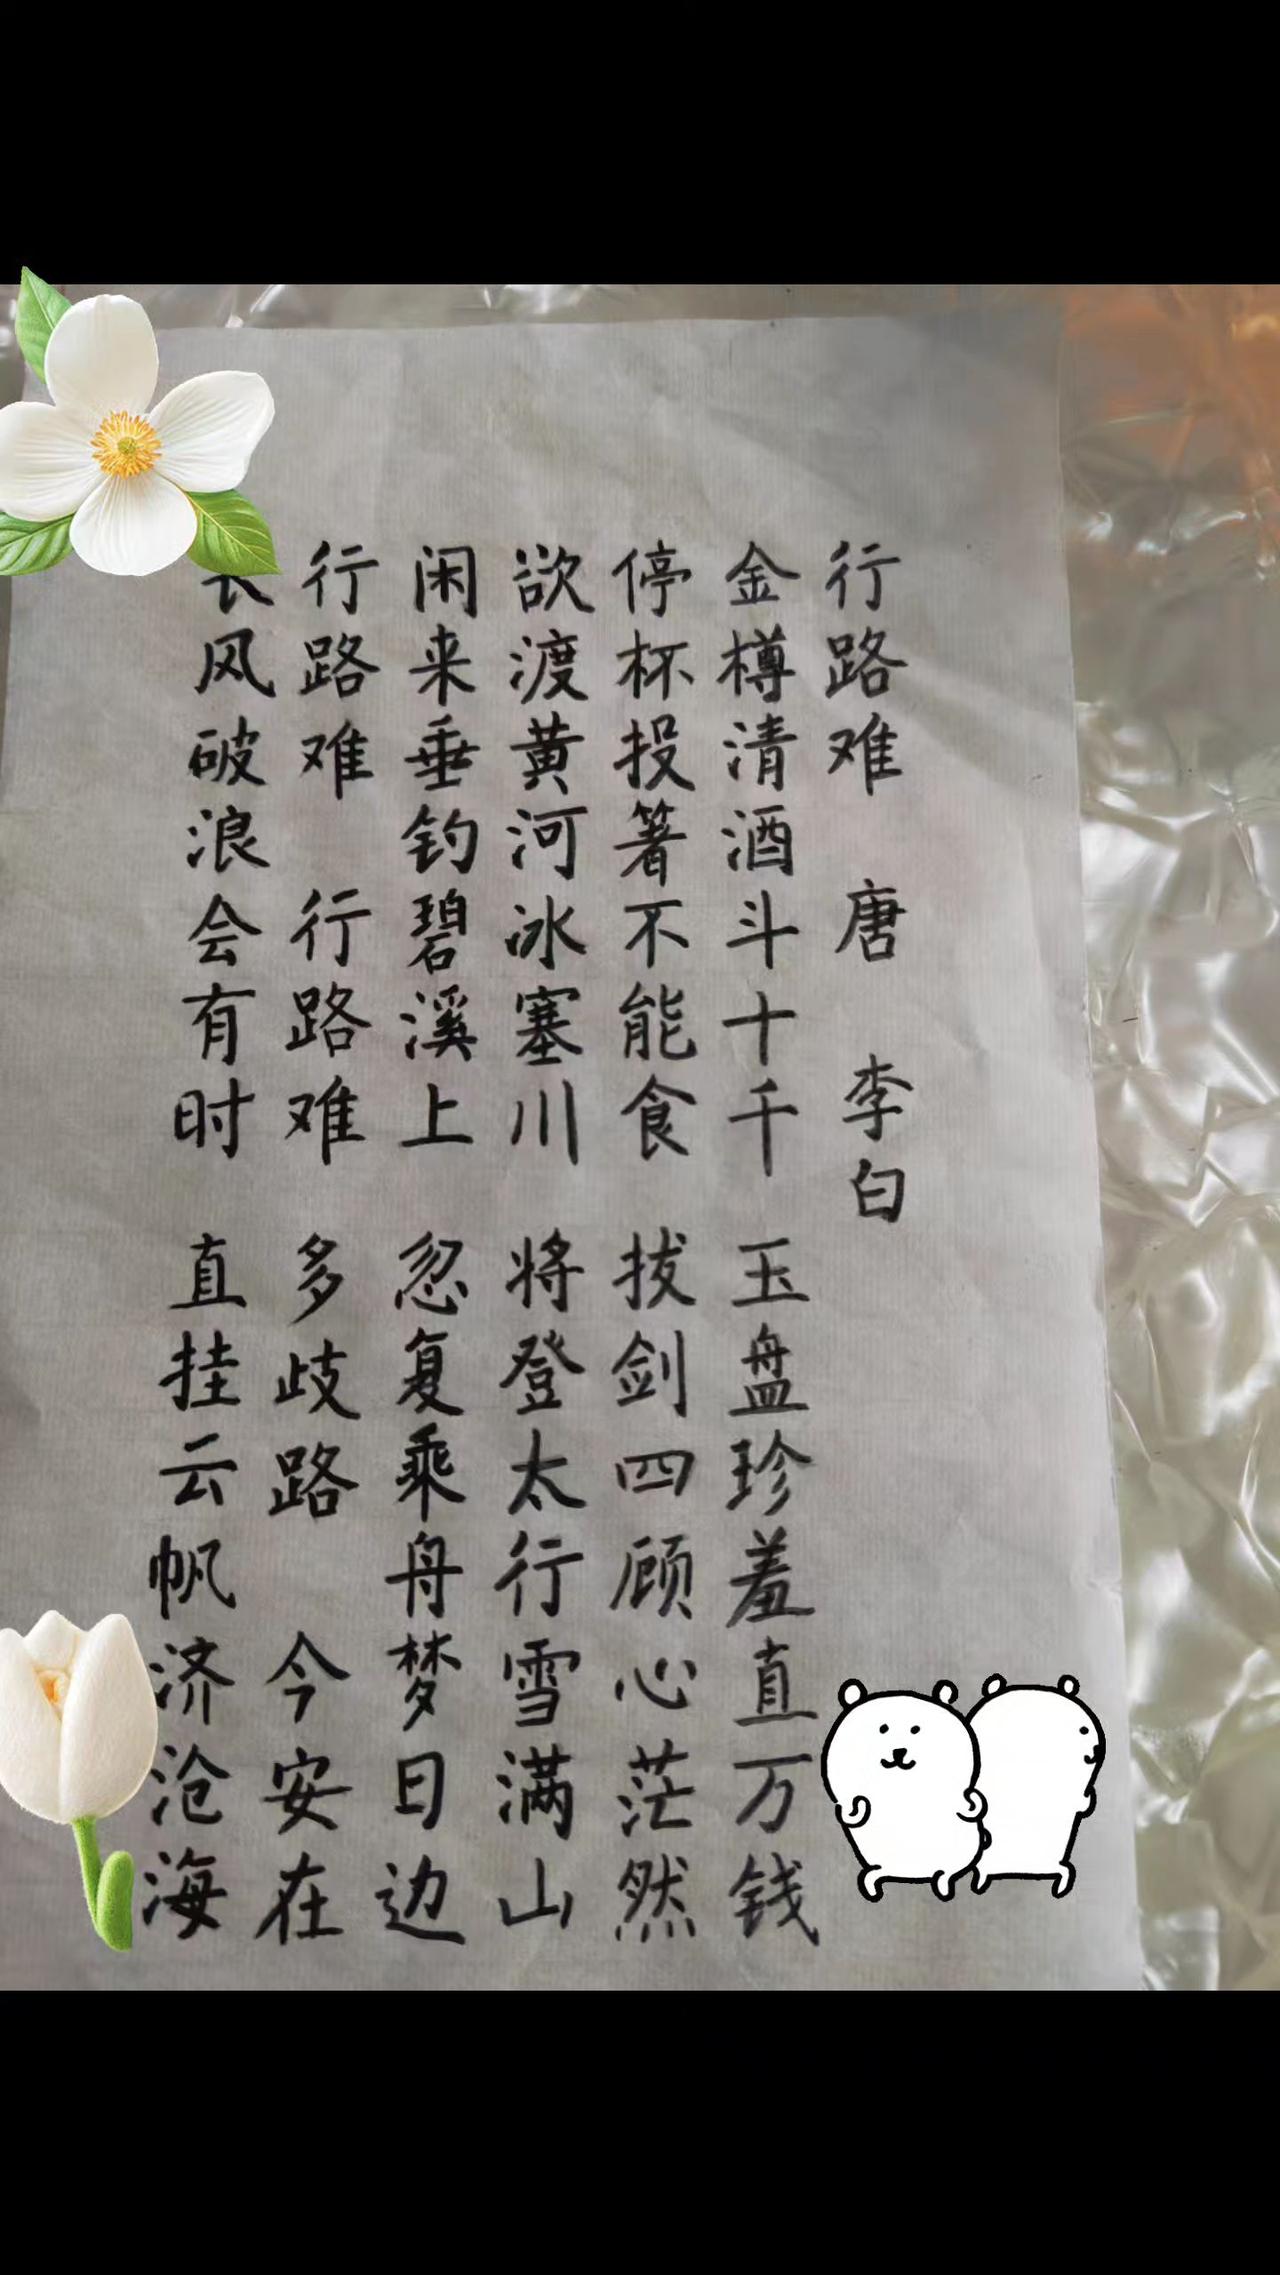 行路难 唐 李白
金樽清酒斗十千 玉盘珍羞直万钱
停杯投箸不能食 拔剑四顾心茫然
欲渡黄河冰塞川 将登太行雪满山
闲来垂钓碧溪上 忽复乘舟梦日边
行路难 行路难 多歧路 今安在
长风破浪会有时 直挂云帆济沧海